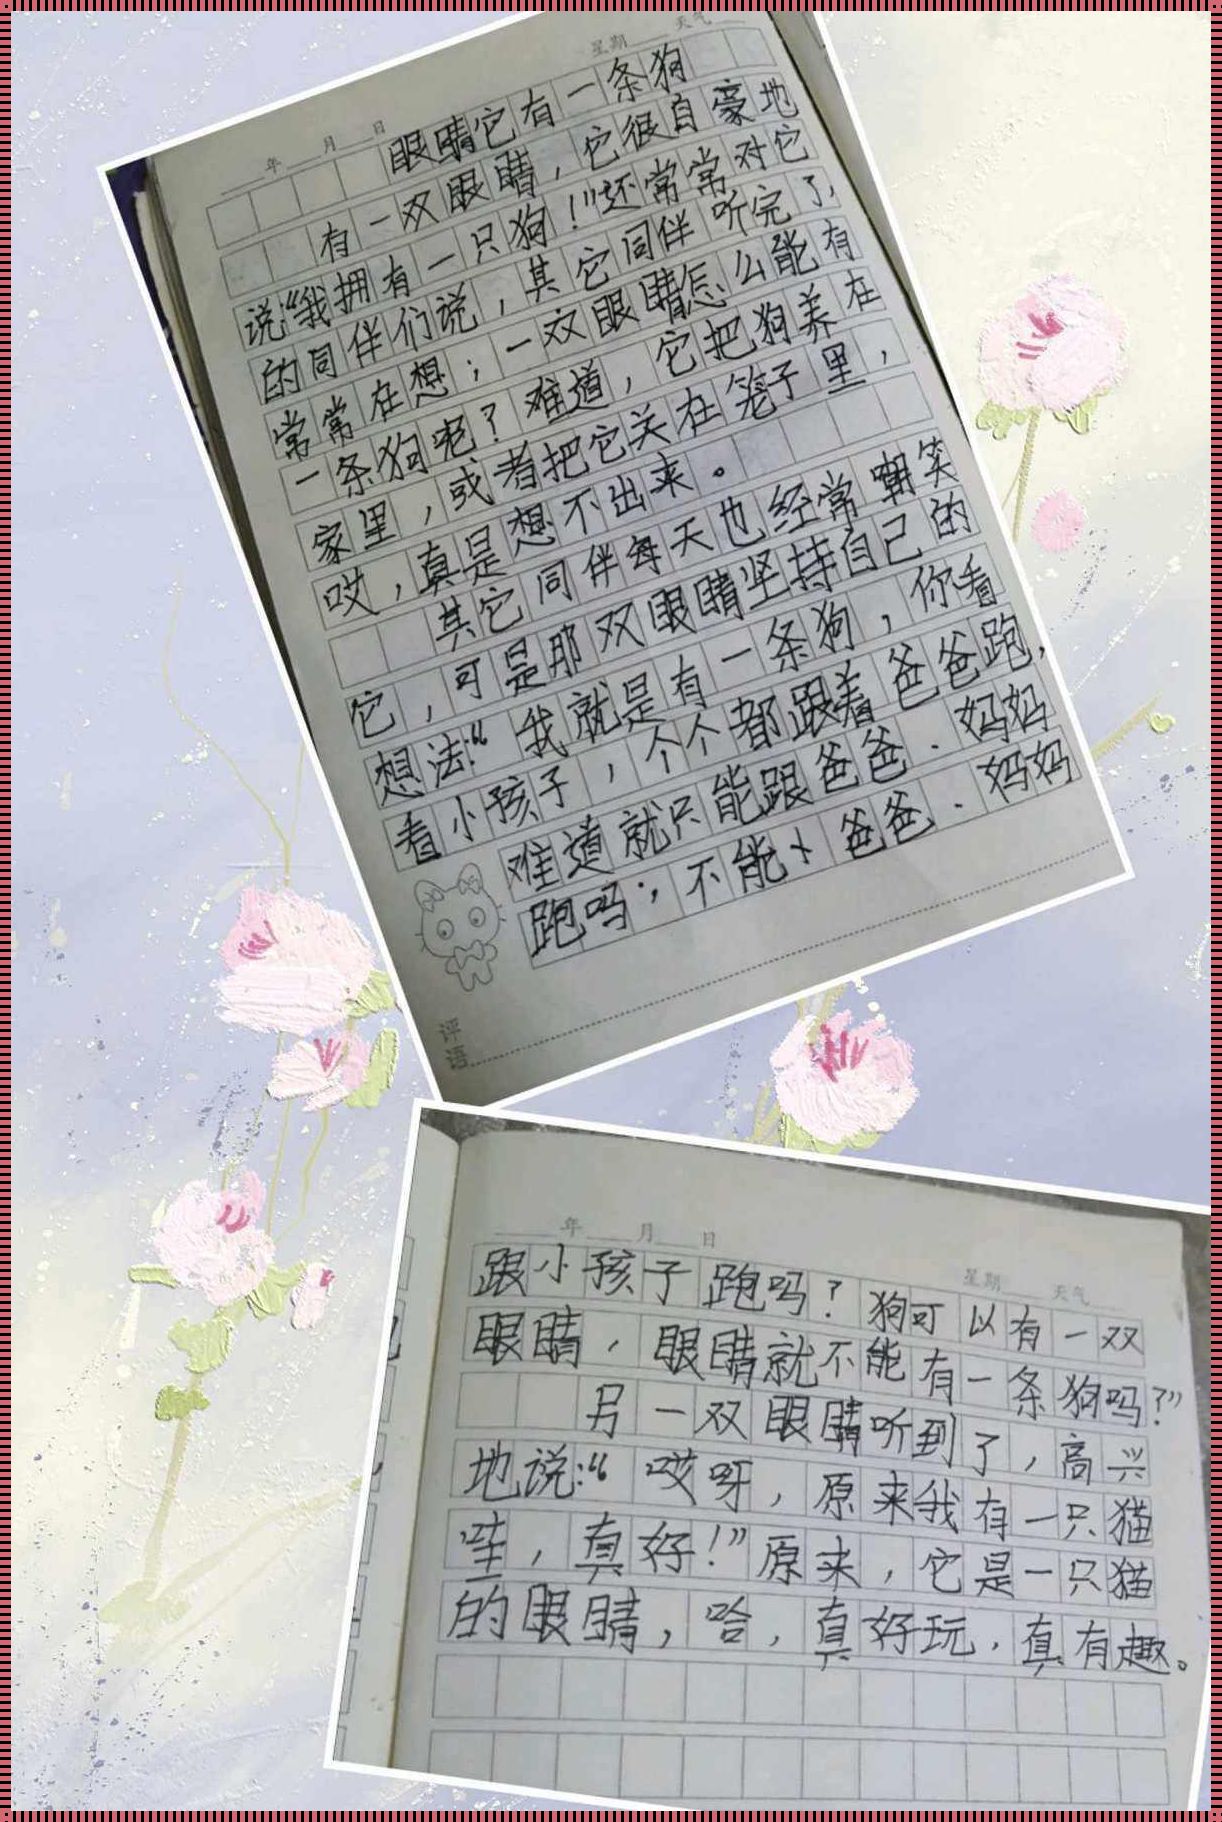 年 月 日 星期 天气
眼睛它有一条狗
有一双眼睛，它很自豪地
说“我拥有一只狗！”还常常对它
的同伴们说，其它同伴听完了，
常常在想；一双眼睛怎么能有
一条狗呢？难道，它把狗养在
家里，或者把它关在笼子里，
哎，真是想不出来。
其它同伴每天也经常嘲笑
它，可是那双眼睛坚持自己的
想法:“我就是有一条狗，你看
看小孩子，个个都跟着爸爸跑，
难道就只能跟爸爸．妈妈
跑吗，不能 爸爸．妈妈
评语
年 月 日 星期 天气
跟小孩子跑吗？狗可以有一双
眼睛，眼睛就不能有一条狗吗？”
另一双眼睛听到了，高兴
地说:“哎呀，原来我有一只猫
哇，真好！”原来，它是一只猫
的眼睛，哈，真好玩，真有趣。